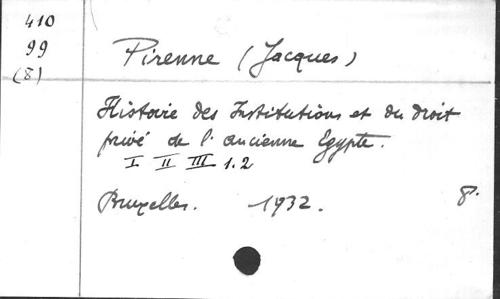 410
99
(8)
Pirenne (Jacques)
Histoire des Institutions et du droit
privé de l'ancienne Egypte.
I II III 1.2
Bruxelles. 1932. 8°.